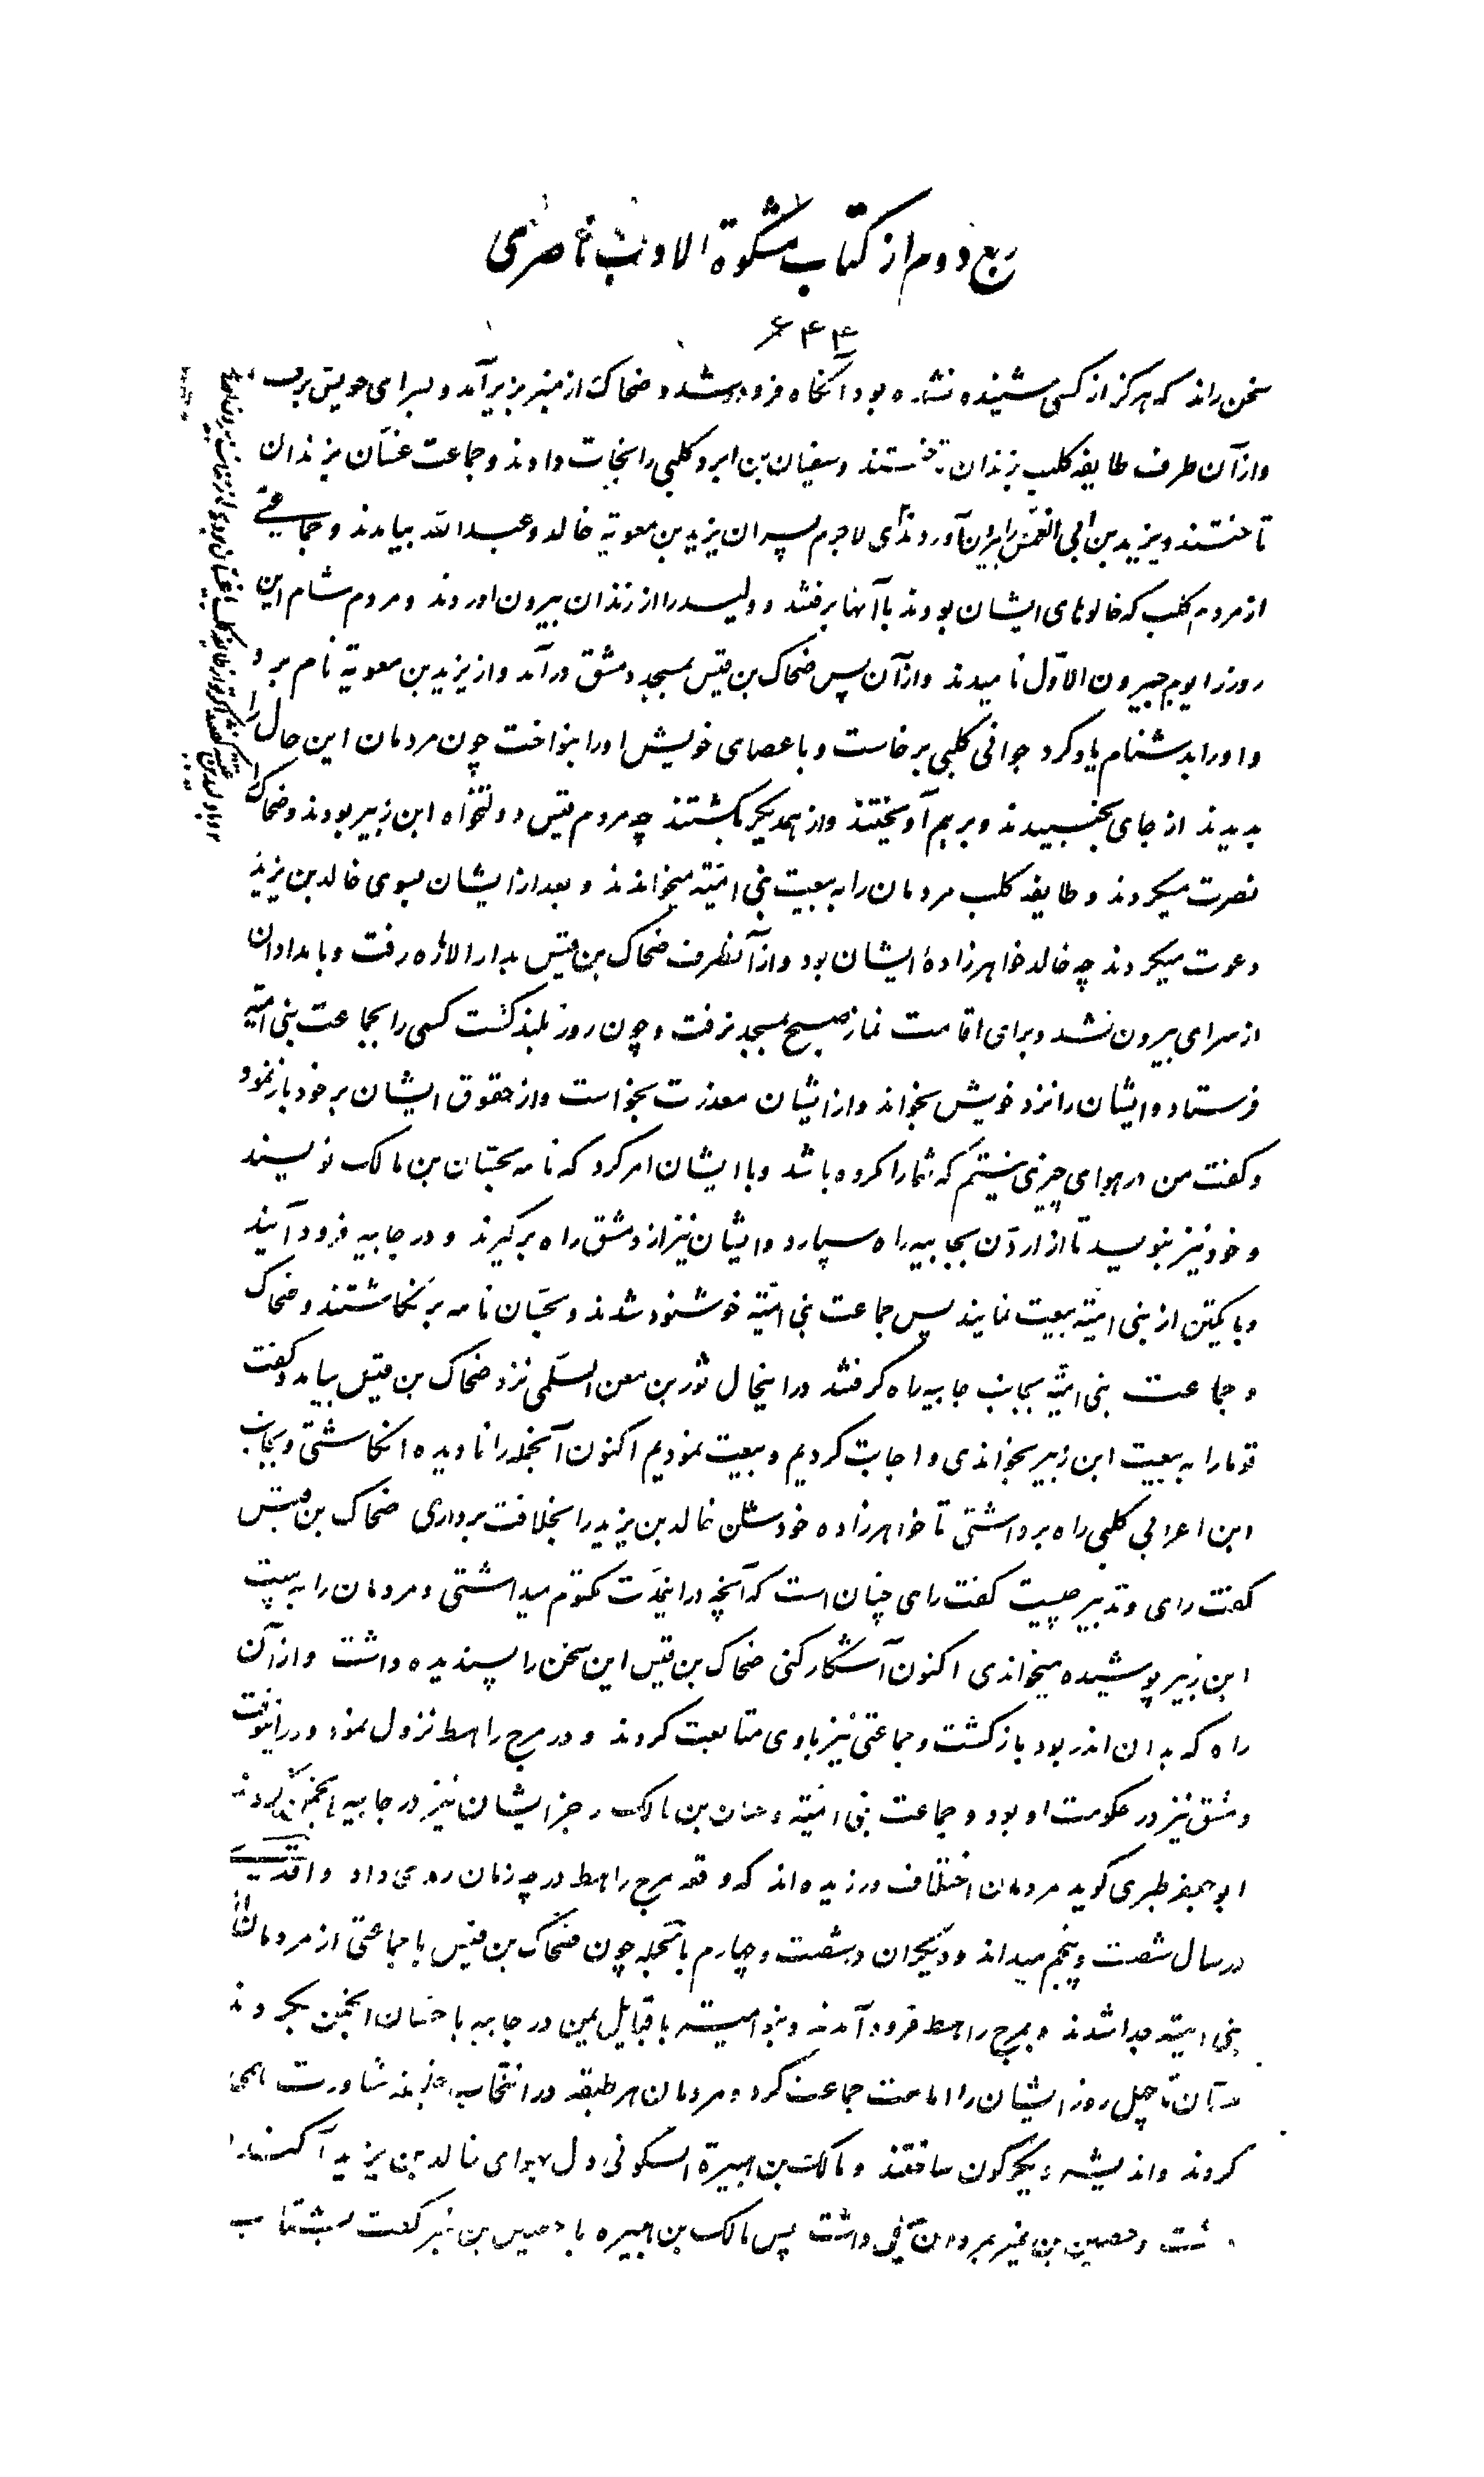 ربع دوم از کتاب مشکوة الادب ناصری
۶۴۴
سخن راند که هرگز از کسی شنیده نشده بود آنگاه فرود شد و ضحاک از منبر بزیر آمد و بسرای خویش برفت
و از آن طرف طایفه کلب بزندان تاختند و سفیان بن ابرد کلبی را نجات دادند و جماعت غسّان بزندان
تاختند و یزید بن ابی الغمس را بیرون آوردند لاجرم پسران یزید بن معویة خالد و عبد الله بیامدند و جماعتی
از مردم کلب که خالوهای ایشان بودند با آنها برفتند و ولید را از زندان بیرون اوردند و مردم شام این
روز را یوم جیرون الاوّل نامیدند و از آن پس ضحاک بن قیس بمسجد دمشق درآمد و از یزید بن معویة نام برد و
و اورا بدشنام یاد کرد جوانی کلبی برخاست و با عصای خویش اورا بنواخت چون مردمان این حال را
بدیدند از جای بجنبیدند و برهم آویختند و از همدیگر بکشتند چه مردم قیس دولتخواه ابن زبیر بودند و ضحاک را
نصرت میکردند و طایفه کلب مردمان را به بیعت بنی امیّه میخواندند و بعد از ایشان بسوی خالد بن یزید
دعوت میکردند چه خالد خواهرزادهٔ ایشان بود و از آنطرف ضحاک بن قیس بدار الاماره رفت و بامدادان
از سرای بیرون نشد و برای اقامت نماز صبح بمسجد نرفت و چون روز بلند گشت کسی را بجماعت بنی امیّه
فرستاد و ایشان را نزد خویش بخواند و از ایشان معذرت بخواست و از حقوق ایشان بر خود باز نمود
و گفت من در هوای چیزی نیستم که شما را مکروه باشد و با ایشان امر کرد که نامه بحسّان بن مالک نویسند
و خود نیز بنویسد تا از اردن بجابیه راه سپارد و ایشان نیز از دمشق راه برگیرند و در جابیه فرود آیند
و با یکتن از بنی امیّه بیعت نمایند پس جماعت بنی امیّه خوشنود شدند و بحسّان نامه برنگاشتند و ضحاک
و جماعت بنی امیّه بجانب جابیه راه گرفتند در اینحال ثور بن معن السلمی نزد ضحاک بن قیس بیامد و گفت
تو ما را به بیعت ابن زبیر بخواندی و اجابت کردیم و بیعت نمودیم اکنون آنجمله را نادیده انگاشتی و بجانب
این اعرابی کلبی راه برداشتی تا خواهرزاده خودشان خالد بن یزید را بخلافت برداری ضحاک بن قیس
گفت رای و تدبیر چیست گفت رای چنان است که آنچه در اینمدّت مکتوم میداشتی و مردمان را به بیعت
ابن زبیر پوشیده میخواندی اکنون آشکار کنی ضحاک بن قیس این سخن را پسندیده داشت و از آن
راه که بدان اندر بود بازگشت و جماعتی نیز با وی متابعت کردند و در مرج راهط نزول نمود و در اینوقت
دمشق نیز در حکومت او بود و جماعت بنی امیّه و حسان بن مالک و جز ایشان نیز در جابیه انجمن کردند
ابو جعفر طبری گوید مردمان اختلاف ورزیده‌اند که وقعه مرج راهط در چه زمان روی داد واقدی
در سال شصت و پنجم میداند و دیگران در شصت و چهارم بالجمله چون ضحاک بن قیس با جماعتی از مردمان از
بنی امیّه جدا شدند و بمرج راهط فرود آمدند و بنو امیّه با قبایل یمن در جابیه با حسان انجمن بکردند
حسّان تا چهل روز ایشان را امامت جماعت کرد و مردمان هر طبقه در انتخاب خلیفه مشاورت همی
کردند و اندیشه دیگرگون ساختند و مالک بن هبیرة السکونی دل بهوای خالد بن یزید آکنده
داشت و حصین بن نمیر بمروان میل داشت پس مالک بن هبیره با حصین بن نمیر گفت بشتاب